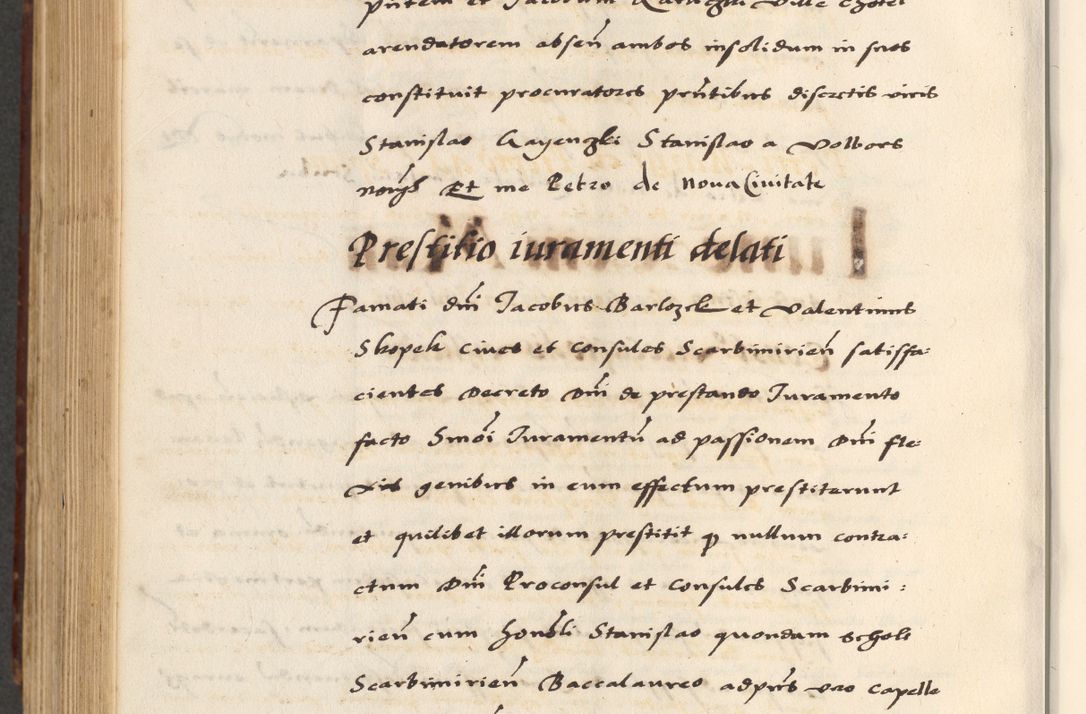 arendatorem absen̄ ambos insolidum in suos
constituit procuratores pn̄tibus discretis viris
Stanislao Stanislao a Volbors
Et me Petro de Nova Civitate
Prestitio iuramenti delati
Famati dn̄i Jacobus Barlozek et Valentinus
Skopek cives et Consules Scarbimirien̄ satisfa-
cientes Decreto Dn̄i de prestando Juramento
facto Juramentū ad passionem Dn̄i fle-
xis genibus in eum effectum prestiterunt
et quilibet illorum prestitit q nullum contra-
ctum Dn̄i Proconsul et Consules Scarbimi-
rien̄ cum Stanislao quondam schole
Scarbimirien̄ Baccalaureo Capelle